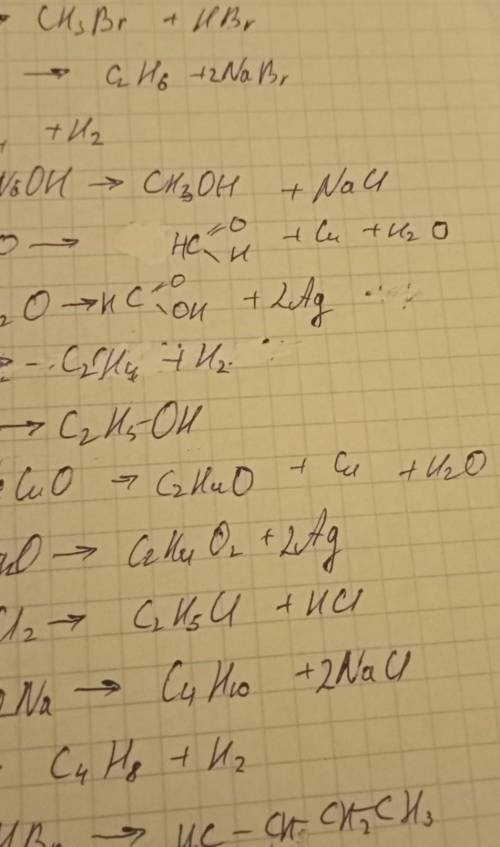 CH3Br + HBr
→ C2H6 + 2NaBr
+ H2
NaOH → CH3OH + NaCl
O → HC=O H + Cu + H2O
2O → HC=O OH + 2Ag
C2H4 + H2
→ C2H5-OH
CuO → C2H4O + Cu + H2O
2O → C2H4O2 + 2Ag
Cl2 → C2H5Cl + HCl
2Na → C4H10 + 2NaCl
C4H8 + H2
HBr → HC - CH CH2CH3